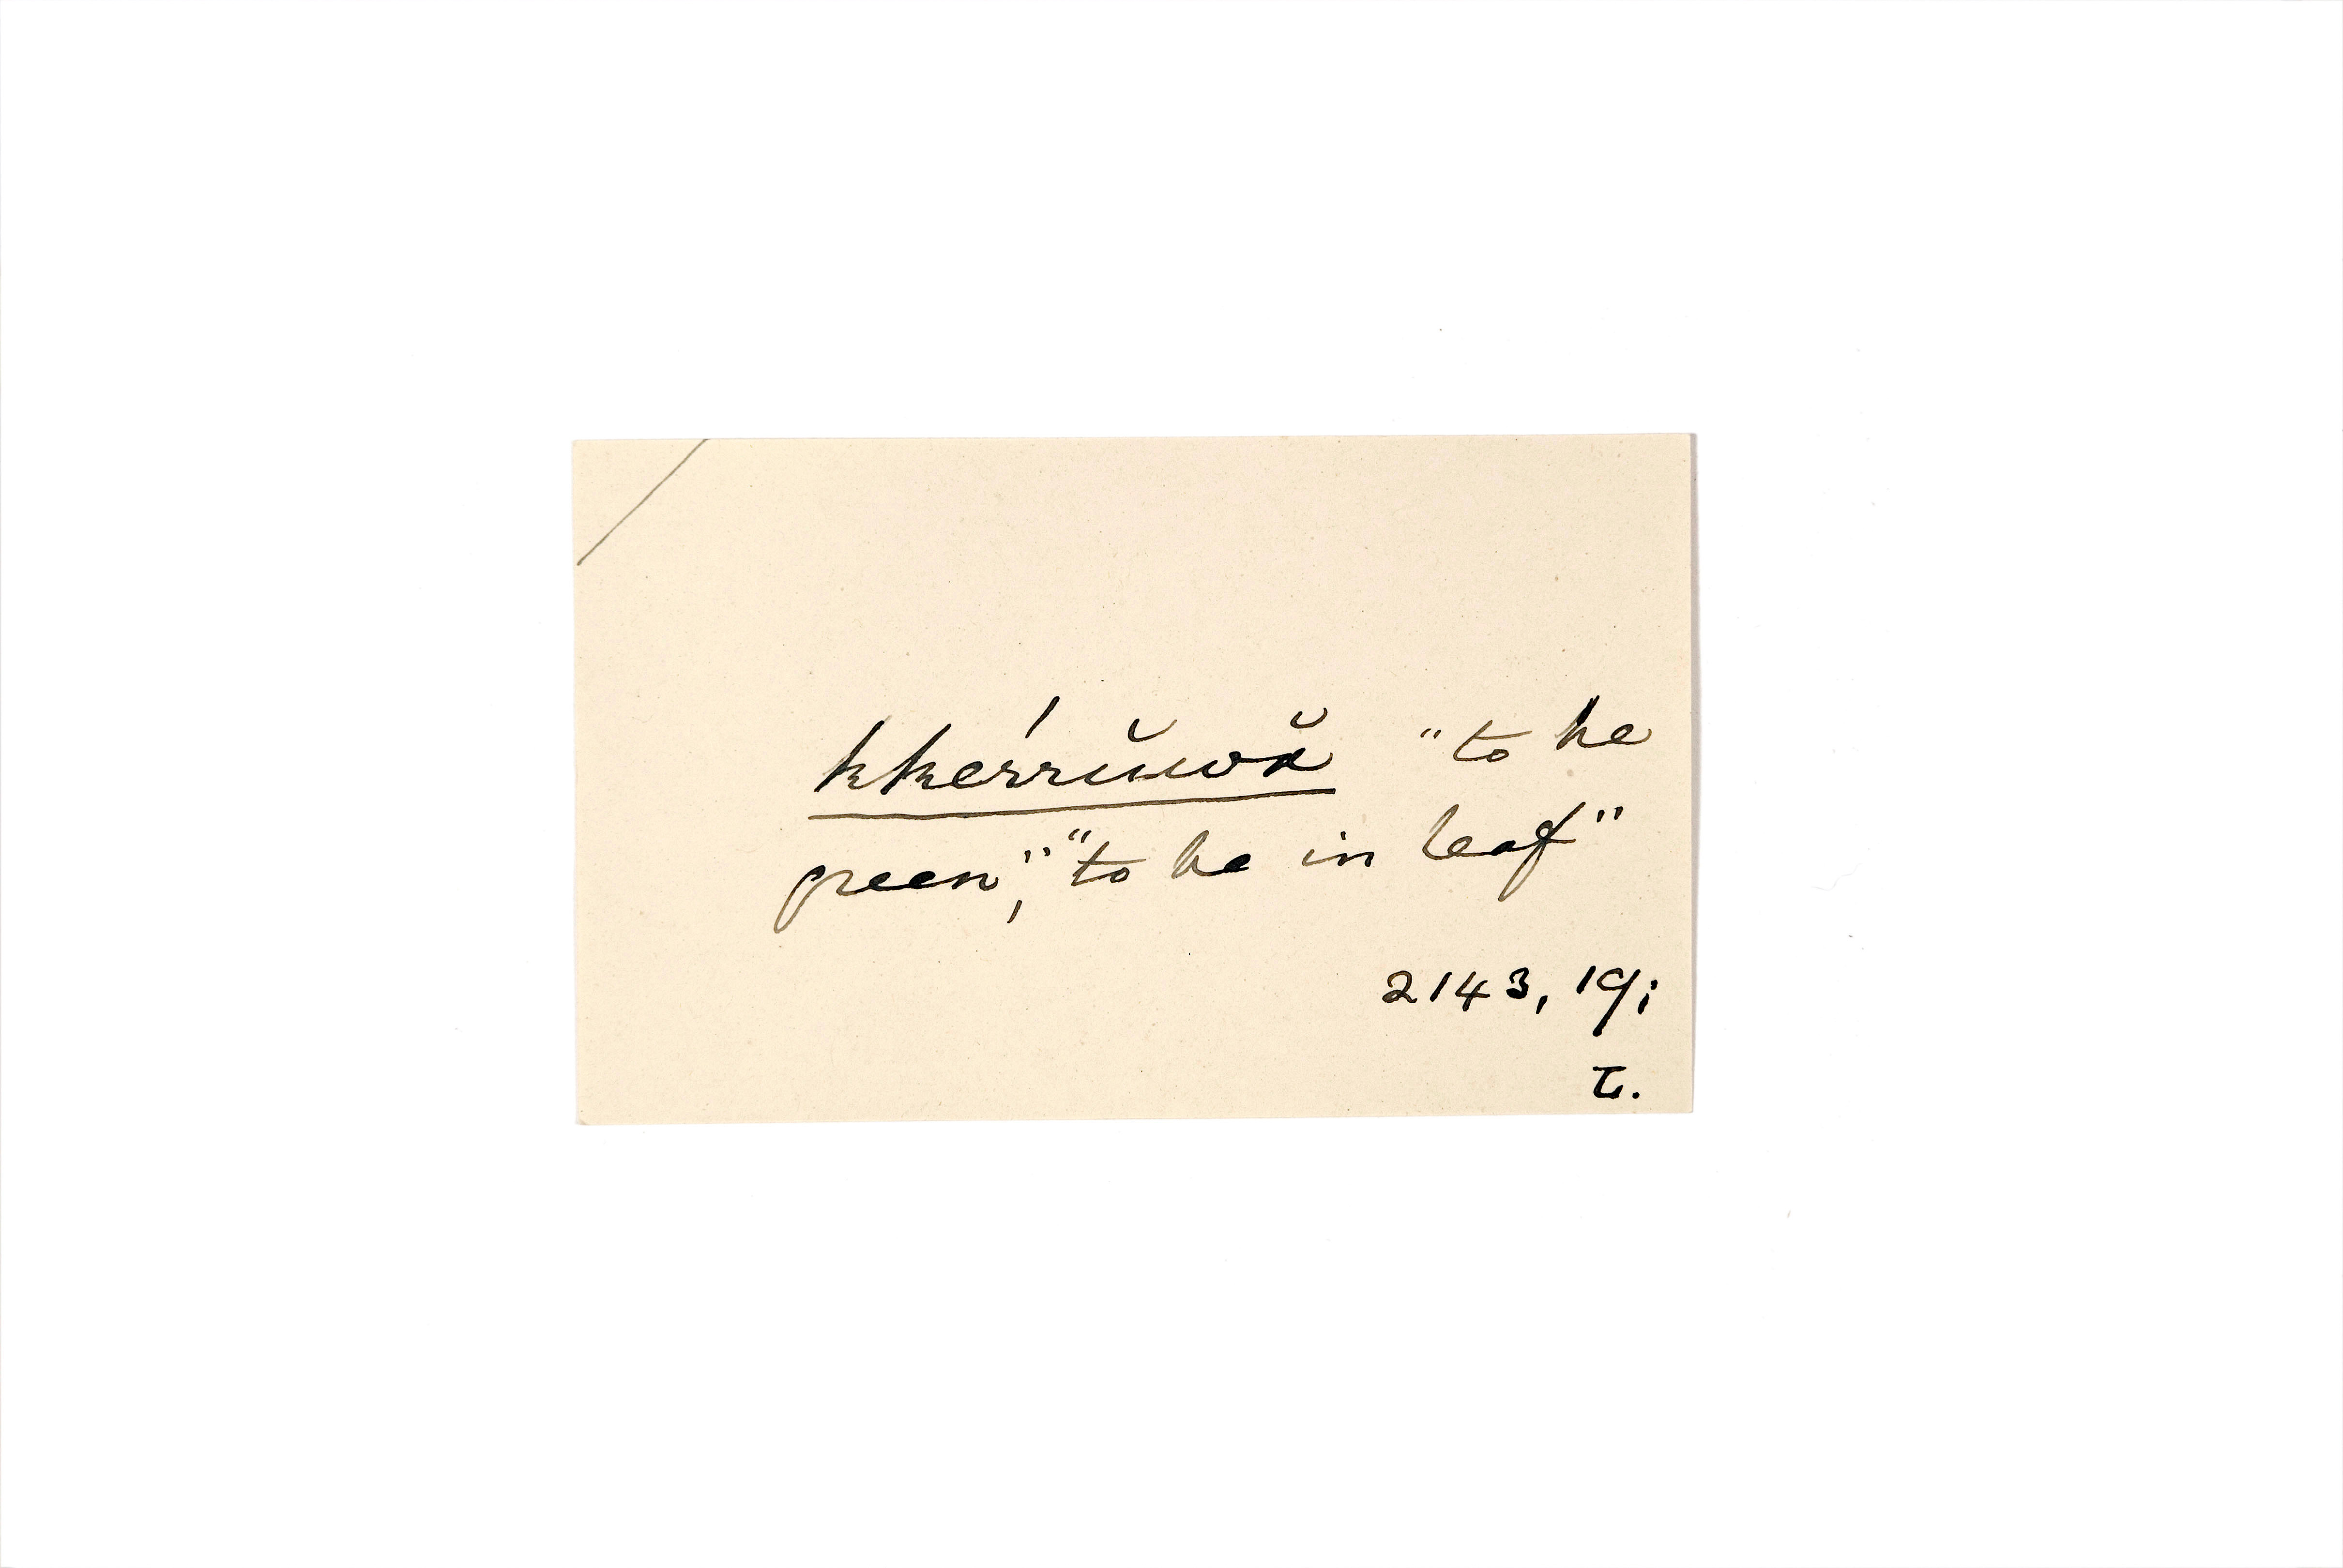 kkérrŭwă "to be
green", "to be in leaf"
2143, 19;
L.